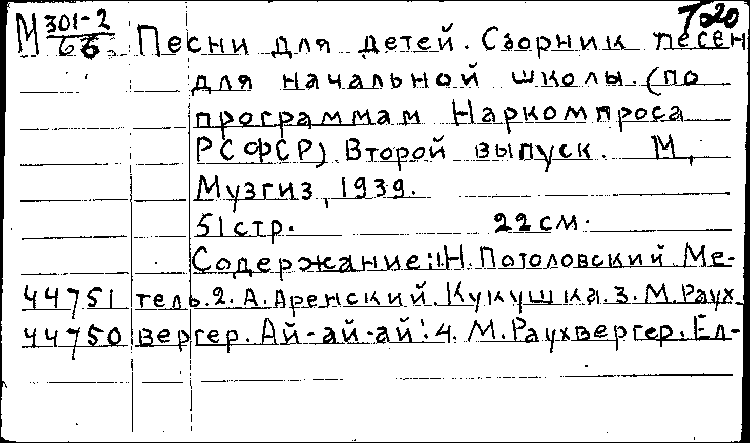 М 301-2
66
Т020
Песни для детей. Сборник песен
для начальной школы. (по
программам Наркомпроса
РСФСР) Второй выпуск. М,
Музгиз, 1939.
51 стр. 22 см.
Содержание: 1. Н. Потоловский. Ме-
44751 тель. 2. А. Аренский. Кукушка. 3. М. Раух
44750 вергер. Ай-ай-ай! 4. М. Раухвергер. Ел-